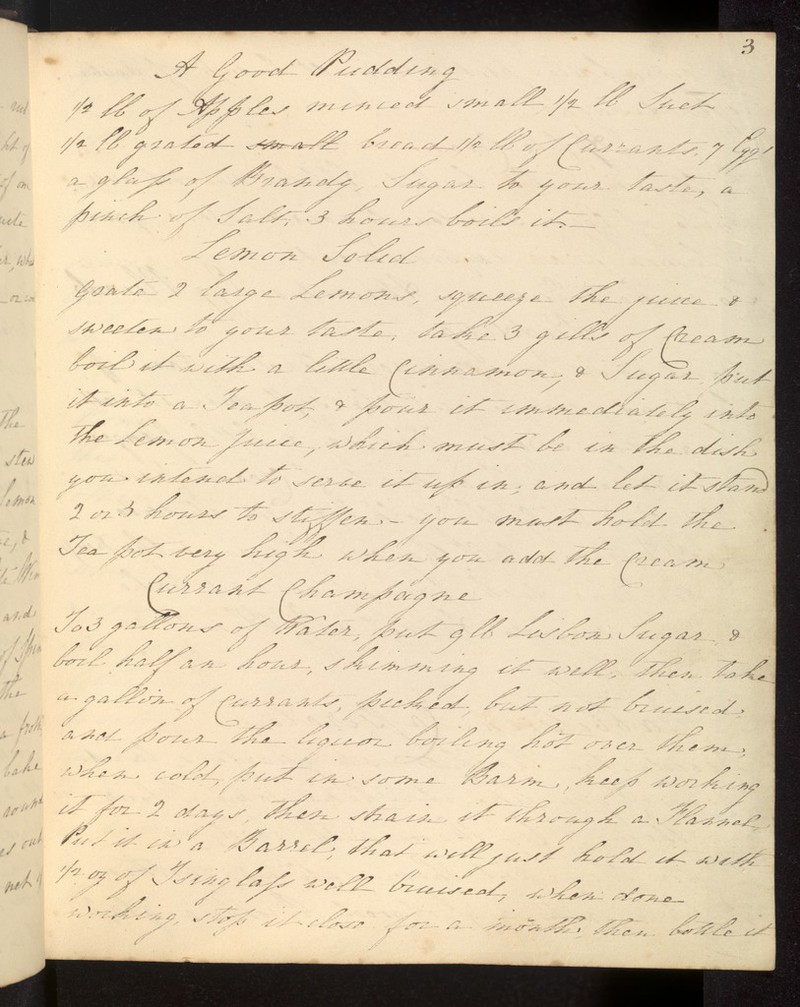 3
A Good Pudding
1/2 lb of Apples minced small 1/2 lb Suet
1/2 lb grated small bread 1/2 lb of Currants, 7 Eggs
a glass of Brandy, Sugar to your taste, a
pinch of Salt, 3 hours boils it.—
Lemon Solid
Grate 2 large Lemons, squeeze the juice &
sweeten to your taste, take 3 gills of Cream
boil it with a little Cinnamon, & Sugar, put
it into a Teapot, & pour it immediately into
the Lemon Juice, which must be in the dish
you intend to serve it up in, and let it stand
2 or 3 hours to stiffen – you must hold the
Tea pot very high when you add the Cream
Currant Champagne
To 3 gallons of Water, put 9lb Lisbon Sugar &
boil half an hour, skimming it well, then take
a gallon of Currants, picked, but not bruised,
and pour the liquor boiling hot over them,
when cold, put in some Barm, keep working
it for 2 days, then strain it through a Flannel
Put it in a Barrel, that will just hold it with
1/2 oz of Isinglass well bruised, when done
working, stop it close for a month, then bottle it